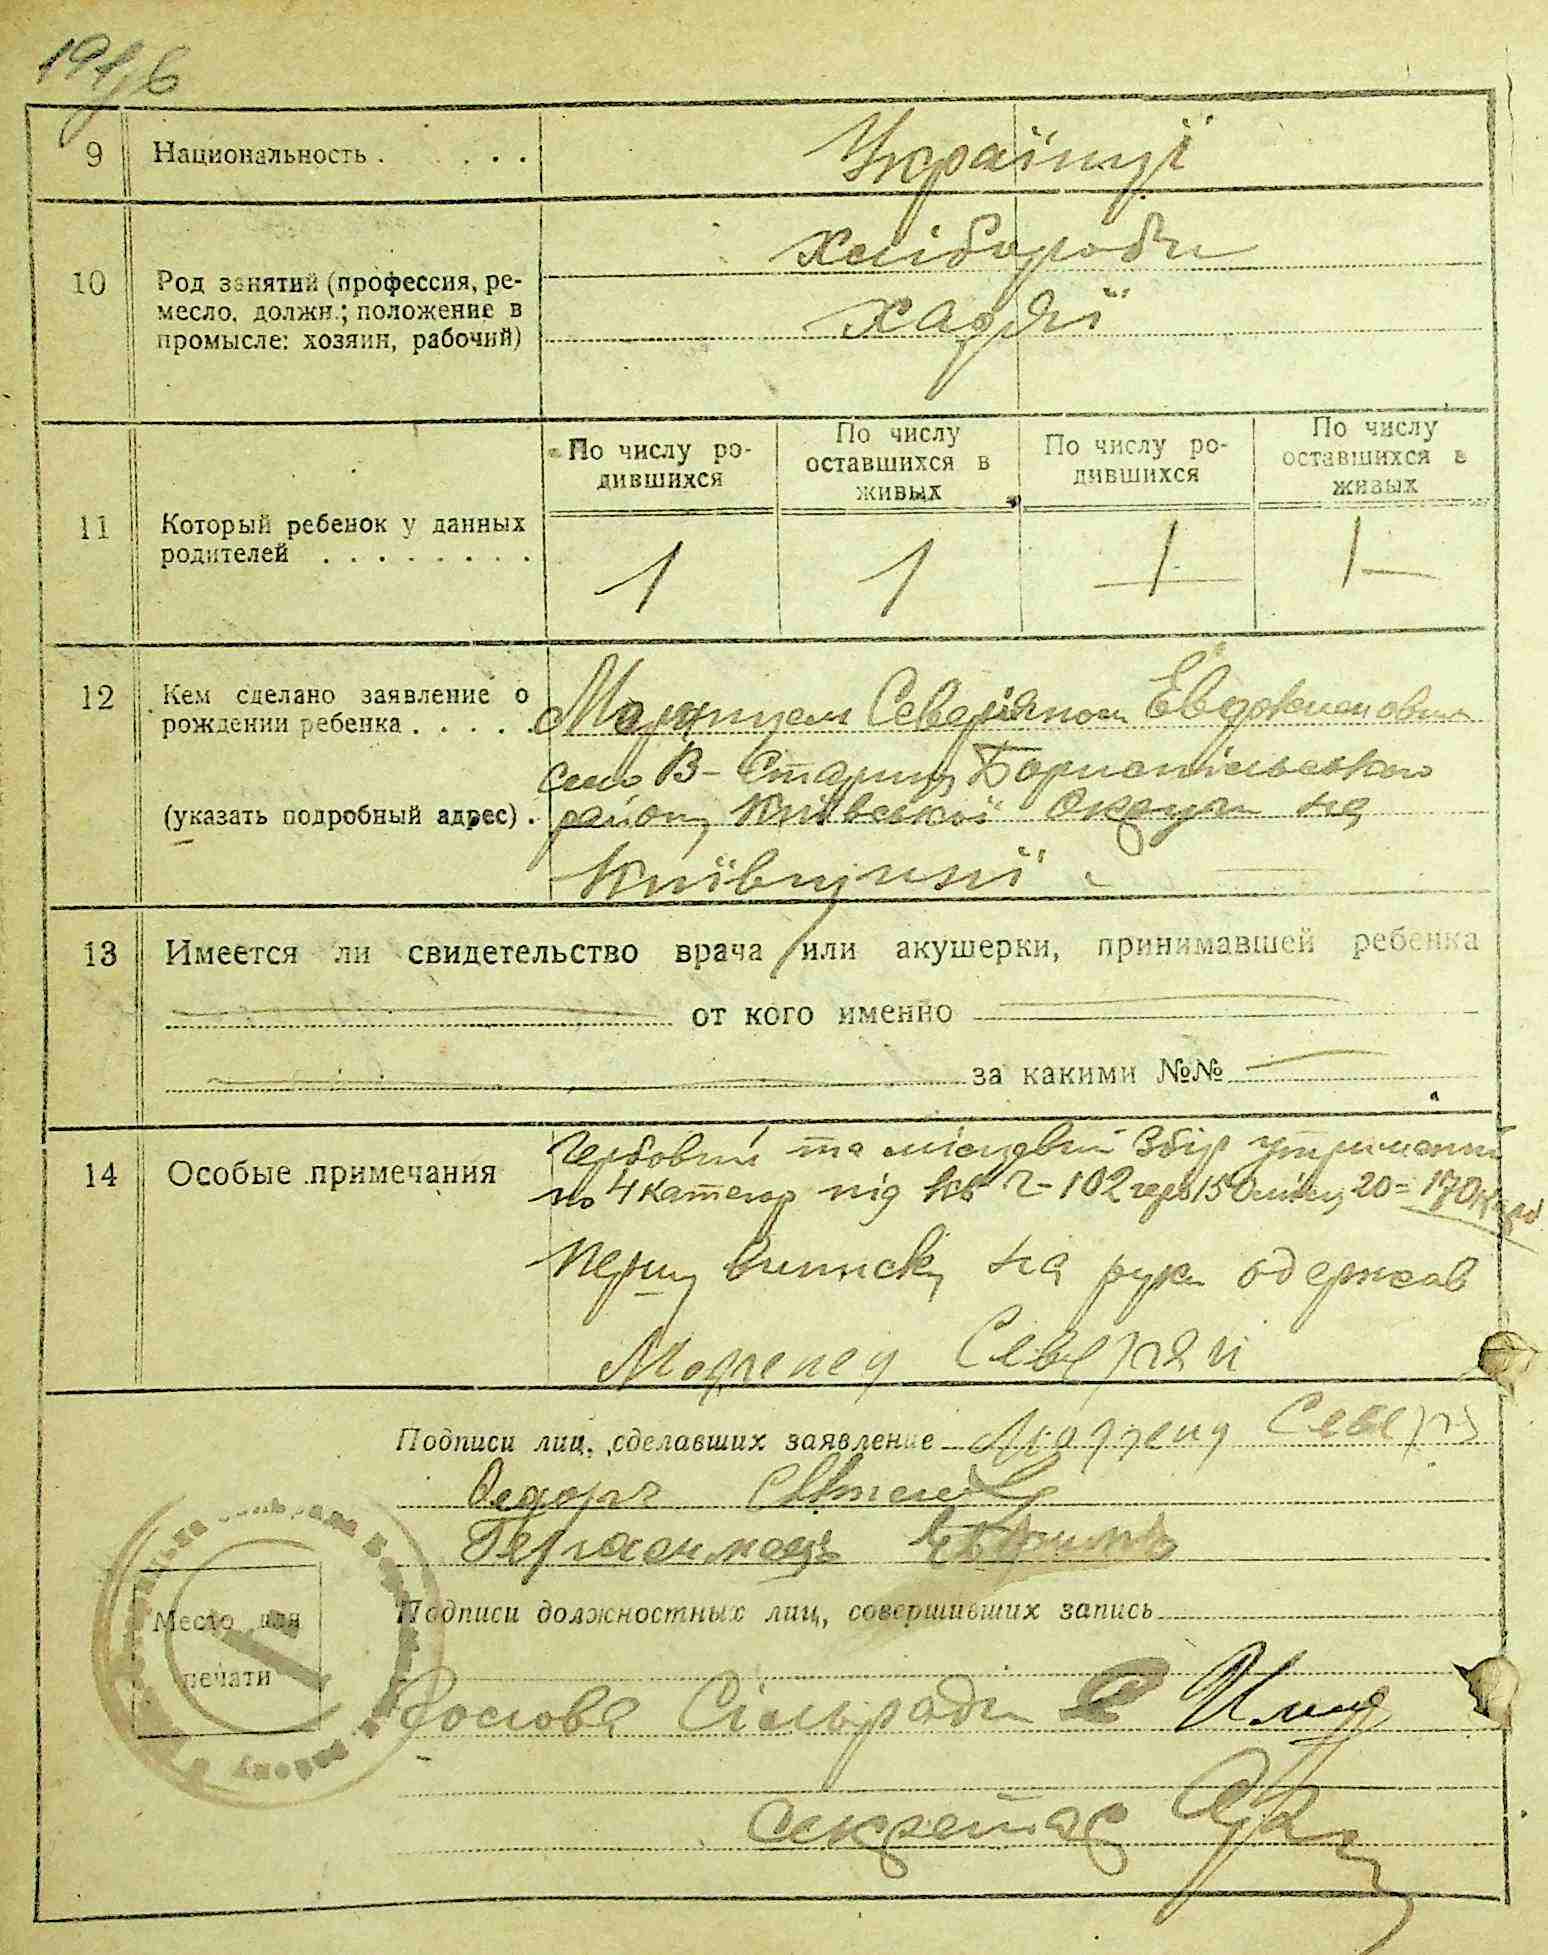 9 Национальность . . . . .
Українці
10 Род занятий (профессия, ре-
месло, должн.; положение в
промысле: хозяин, рабочий)
Хлібороби
11 Который ребенок у данных
родителей . . . . . . . .
По числу ро-
дившихся
По числу
оставшихся в
живых
По числу ро-
дившихся
По числу
оставшихся в
живых
1 1
12 Кем сделано заявление о
рождении ребенка . . . . .
(указать подробный адрес) .
Северяном
село В-Стариця Бориспільського
району Київської округи на
Київщині
13 Имеется ли свидетельство врача или акушерки, принимавшей ребенка
от кого именно
за какими №№
14 Особые примечания
Гербовий та місцевий збір утриманий
по 4 категор під кв Ч-102 герб 150 місц 20 = 170
Першу виписку на руки одержав
Северян
Подписи лиц, сделавших заявление
Федоръ
Подписи должностных лиц, совершивших запись
Место для
печати
Голова Сільради
секретар